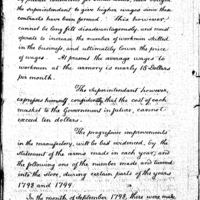 the Superintendent to give higher wages since their
contracts have been formed. This however,
cannot be long felt disadvantageously, and must
operate to increase the number of workmen skilled
in the business, and ultimately lower the price
of wages. At present the average wages to
workmen at the armory is nearly 18 Dollars
per month.
The Superintendent however,
expresses himself confidently that the cost of each
musket to the Government in future, cannot
exceed ten dollars.
The progressive improvements
in the manufactory, will be best evidenced, by the
statement of the arms made in each year; and
the following one of the number made and turned
into the store, during certain parts of the years
1798 and 1799.
In the month of September 1798, there were made